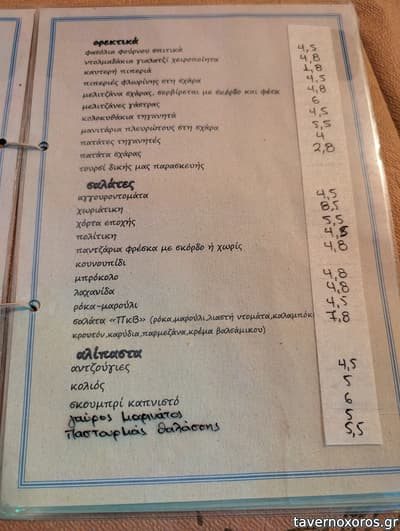 ορεκτικά
φασόλια φούρνου σπιτικά
ντολμαδάκια γιαλαντζί χειροποίητα
καυτερή πιπεριά
πιπεριές φλωρίνης στη σχάρα
μελιτζάνα σχάρας, σερβίρεται με σκόρδο και φέτα
μελιτζάνες γάστρας
κολοκυθάκια τηγανητά
μανιτάρια πλευρώτους στη σχάρα
πατάτες τηγανητές
πατάτα σχάρας
τουρσί δικής μας παρασκευής
4,5
4,8
1,8
4,5
4,8
6
4,5
5,5
4
2,8
σαλάτες
αγγουροντομάτα 4,5
χωριάτικη 8,5
χόρτα εποχής 5,5
πολίτικη 4,5
παντζάρια φρέσκα με σκόρδο ή χωρίς 4,8
κουνουπίδι
μπρόκολο 4,8
λαχανίδα 4,8
ρόκα-μαρούλι 4,5
σαλάτα «ΠκΒ» (ρόκα,μαρούλι,λιαστή ντομάτα,καλαμπόκι 7,8
κρουτόν,καρύδια,παρμεζάνα,κρέμα βαλσάμικου)
αλίπαστα
αντζούγιες 4,5
κολιός 5
σκουμπρί καπνιστό 6
γαύρος μαρινάτος 5
παστουρμάς θαλάσσης 5,5
tavernoxoros.gr